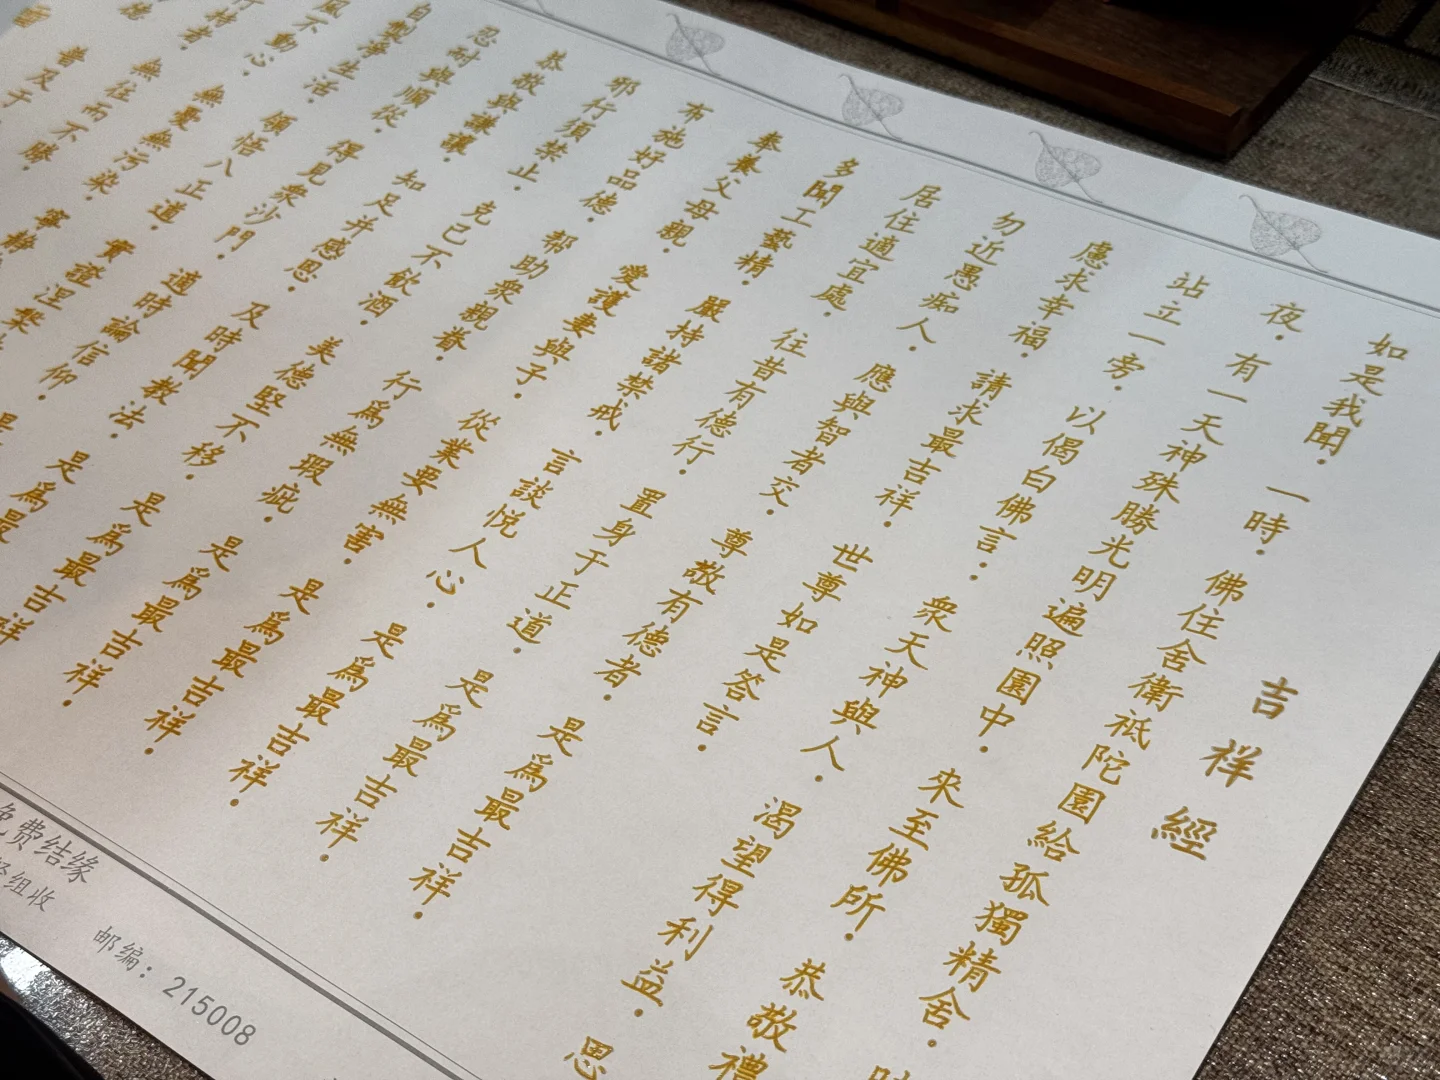 吉祥經
如是我聞.一時.佛住舍衛祇陀園給孤獨精舍.時
夜.有一天神殊勝光明遍照園中.來至佛所.恭敬禮
站立一旁.以偈白佛言.衆天神與人.渴望得利益.思
慮求幸福.請求最吉祥.世尊如是答言.
勿近愚痴人.應與智者交.尊敬有德者.是爲最吉祥.
居住適宜處.往昔有德行.置身于正道.是爲最吉祥.
多聞工藝精.嚴持諸禁戒.言談悅人心.是爲最吉祥.
奉養父母親.愛護妻與子.從業要無害.是爲最吉祥.
布施好品德.帮助衆親眷.行爲無瑕疵.是爲最吉祥.
邪行須禁止.克己不飲酒.美德堅不移.是爲最吉祥.
恭敬與謙讓.知足并感恩.及時聞教法.是爲最吉祥
忍耐與順從.得見衆沙門.適時論信仰.是爲最
自製淨生活.領悟八正道.實證涅槃是
風不動心.無憂無污染.寧靜
行持者.無往而不勝.
普及于
免费结缘
组收
邮编：215008